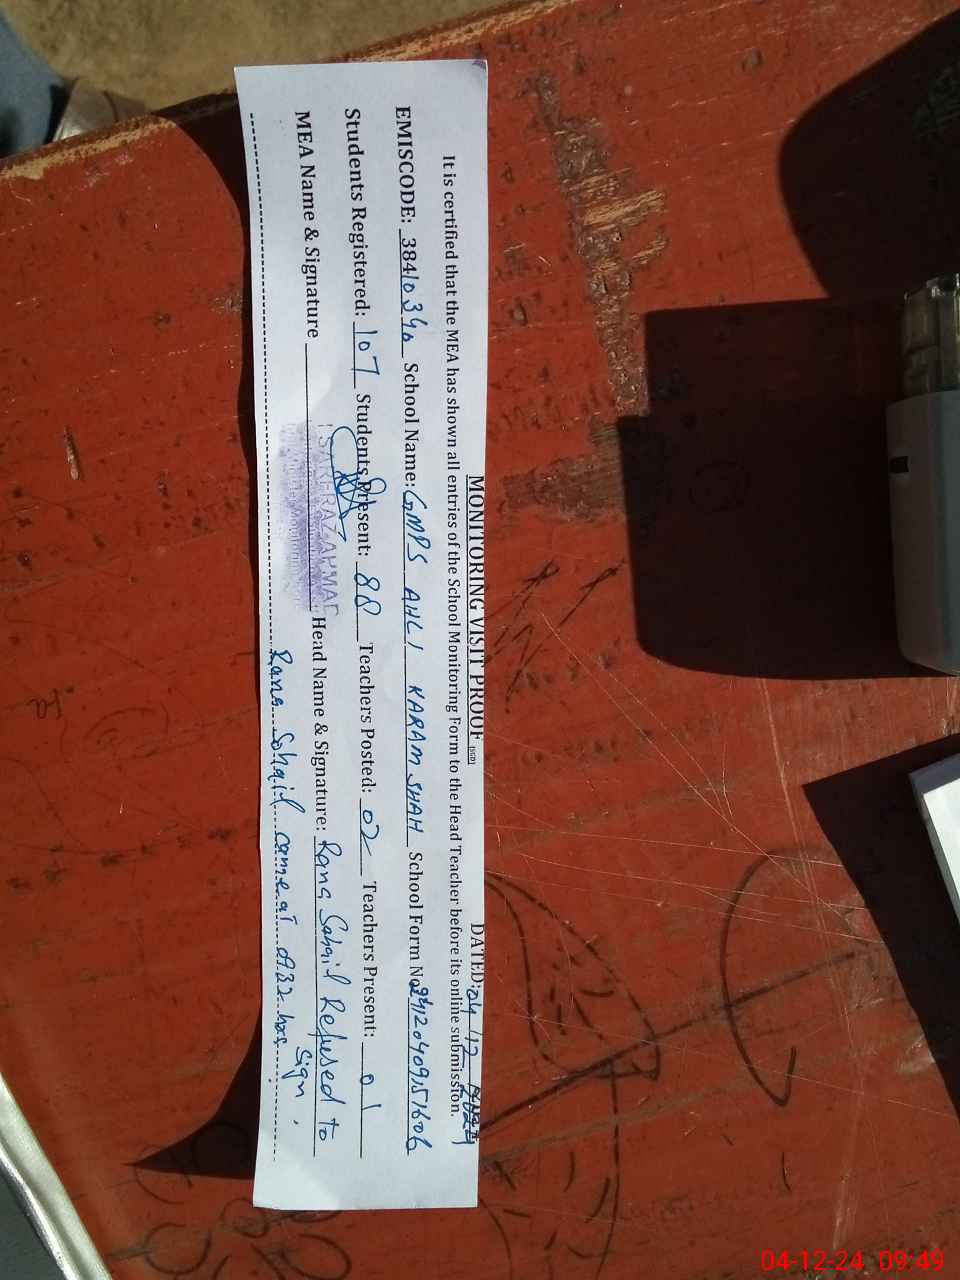 MONITORING VISIT PROOF DATED: 04/12/2024
It is certified that the MEA has shown all entries of the School Monitoring Form to the Head Teacher before its online submission.
EMISCODE: 38410340 School Name: GMPS AHLI KARAM SHAH School Form No. 24120409151606
Students Registered: 107 Students Present: 88 Teachers Posted: 02 Teachers Present: 01
MEA Name & Signature SARFRAZ AHMAD Head Name & Signature: Rana Sohail Refused to
sign.
Rana Sohail came at 0932 hrs.
04-12-24 09:49